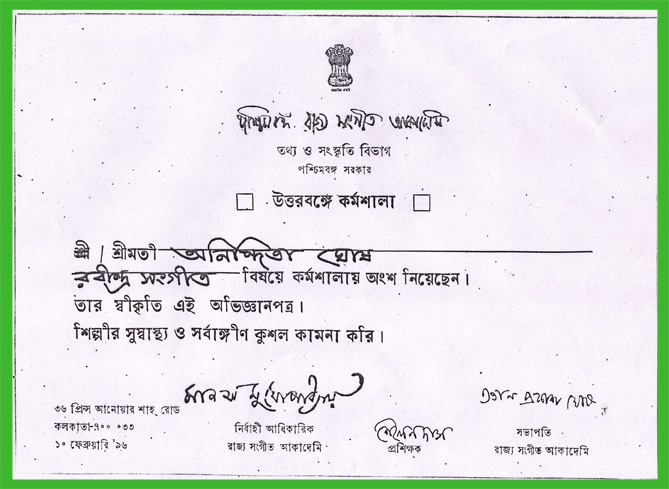 পশ্চিমবঙ্গ রাজ্য সংগীত আকাদেমি
তথ্য ও সংস্কৃতি বিভাগ
পশ্চিমবঙ্গ সরকার
উত্তরবঙ্গে কর্মশালা
শ্রী / শ্রীমতী অনিন্দিতা ঘোষ
রবীন্দ্র সংগীত বিষয়ে কর্মশালায় অংশ নিয়েছেন।
তার স্বীকৃতি এই অভিজ্ঞানপত্র।
শিল্পীর সুস্বাস্থ্য ও সর্বাঙ্গীণ কুশল কামনা করি।
৩৬ প্রিন্স আনোয়ার শাহ্ রোড
কলকাতা-৭০০ ০৩৩
১০ ফেব্রুয়ারি '৯৬
মানস মুখোপাধ্যায়
নির্বাহী আধিকারিক
রাজ্য সংগীত আকাদেমি
প্রশিক্ষক
সভাপতি
রাজ্য সংগীত আকাদেমি